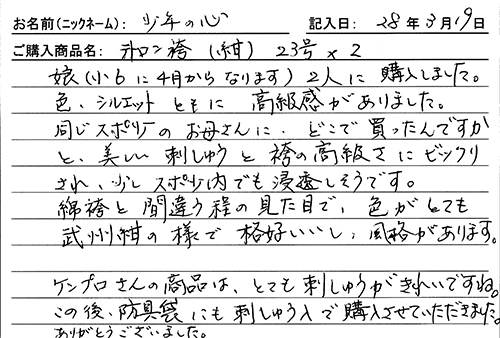 お名前(ニックネーム): 少年の心 記入日: 28年3月19日
ご購入商品名: テトロン袴(紺) 23号×2
娘(小6に4月からなります)2人に購入しました。
色、シルエットともに高級感がありました。
同じスポ少のお母さんに、どこで買ったんですか
と、美しい刺しゅうと袴の高級さにビックリ
され、少しスポ少内でも浸透しそうです。
綿袴と間違う程の見た目で、色がとても
武州紺の様で格好いいし、風格があります。
ケンプロさんの商品は、とても刺しゅうがきれいですね。
この後、防具袋にも刺しゅう入で購入させていただきました。
ありがとうございました。